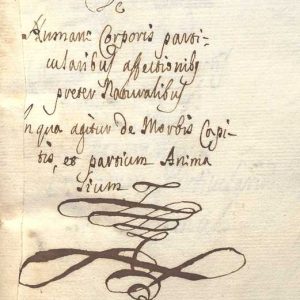 De
Humani Corporis parti-
cularibus affectionibus
preter Naturalibus
In qua agitur de Morbis Capi-
tis, et partium Anima
lium